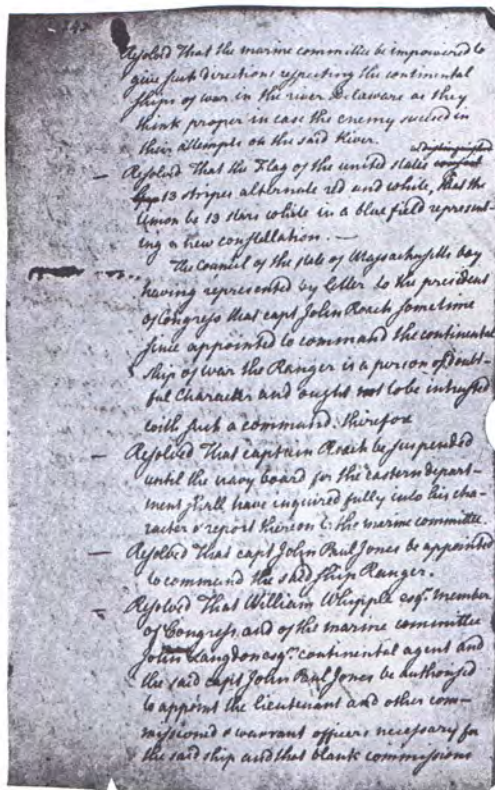 Resolved That the marine committee be impowered to
give such directions respecting the continental
ships of war in the river Delaware as they
think proper in case the enemy succeed in
their attempts on the said River.
distinguished
Resolved That the Flag of the united states consist
13 stripes alternate red and white, that the
Union be 13 stars white in a blue field represent-
ing a new constellation. —
The Council of the state of Massachusetts bay
having represented by letter to the president
of Congress that capt John Roach sometime
since appointed to command the continental
ship of war the Ranger is a person of doubt-
ful character and ought not to be intrusted
with such a command. therefore
Resolved That captain Roach be suspended
until the navy board for the eastern depart-
ment shall have inquired fully into his cha-
racter & report thereon to the marine committee.
Resolved That capt John Paul Jones be appointed
to command the said ship Ranger.
Resolved That William Whipple esqr. member
of Congress and of the marine committee
John Langdon esqr. continental agent and
the said capt John Paul Jones be authorised
to appoint the lieutenant and other com-
missioned & warrant officers necessary for
the said ship and that blank commissions